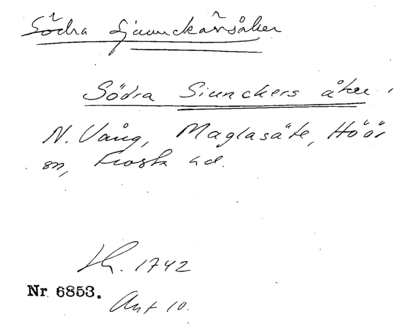 Södra Sjunckarsåker
Södra Siunckers åker
N. Vång, Maglasäte, Höör
sn, Frosta hd.
Lh. 1742
Nr 6853. Akt 10.